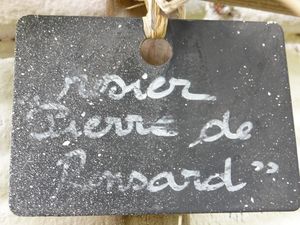 rosier
"Pierre de
Ronsard"